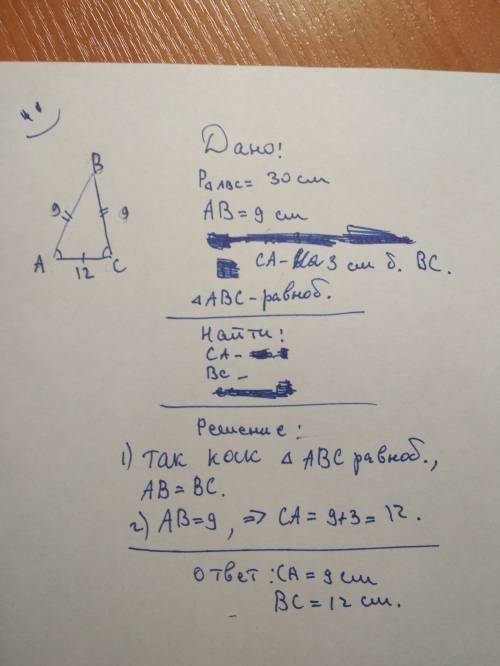 B
9
9
A
C
12
Дано!
P△ABC = 30 см
AB = 9 см
CA - на 3 см б. BC.
△ABC - равноб.
Найти!
CA -
BC -
Решение:
1) Так как △ ABC равноб.,
AB = BC.
2) AB = 9, => CA = 9+3 = 12.
Ответ: CA = 9 см
BC = 12 см.